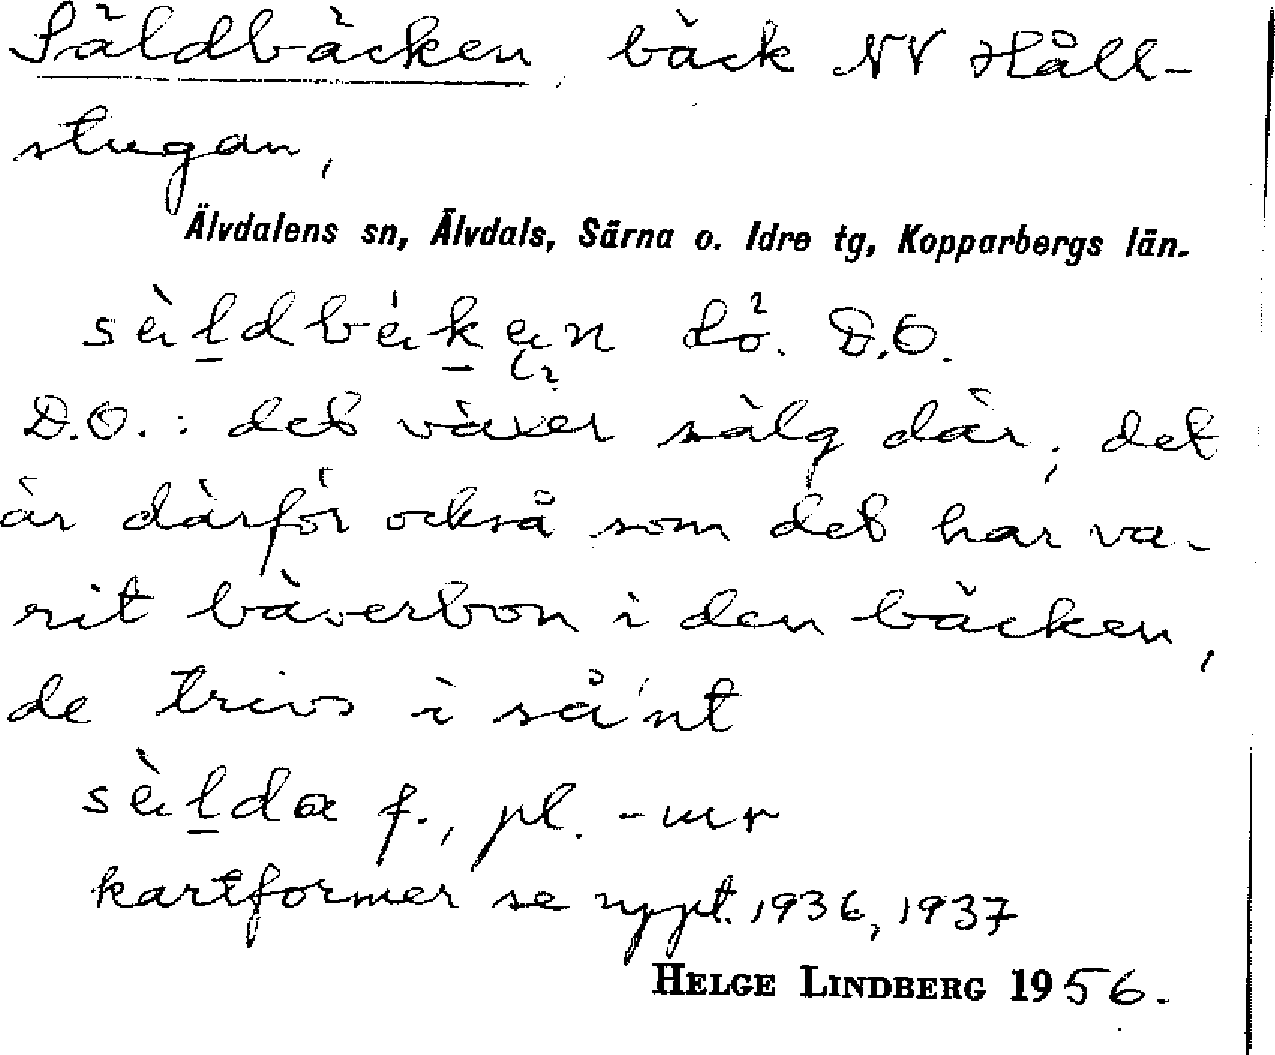 Säldbäcken, bäck NV Håll-
stugan,
Älvdalens sn, Älvdals, Särna o. Idre tg, Kopparbergs län.
D.O.
D.O.: det växer sälg där; det
är därför också som det har va-
rit bäverbon i den bäcken,
de trivs i så'nt
sèlda f., pl. -ur
kartformer se uppt. 1936, 1937
HELGE LINDBERG 1956.